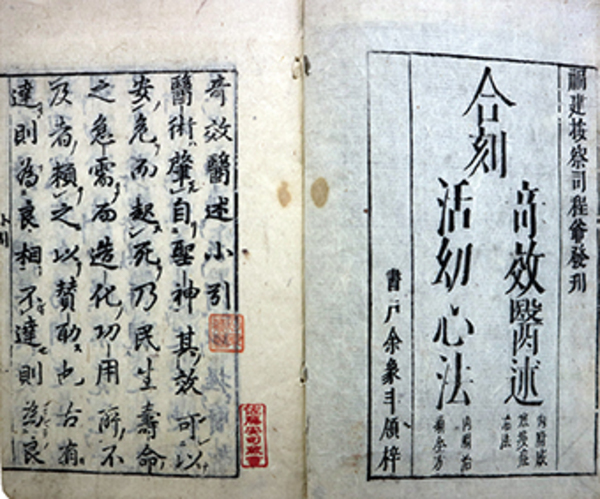 福建按察司程爺發刊
合刻
奇效醫述
活幼心法
書戶余象斗領梓
奇效醫述小引
醫術肇自聖神其效可以
安危而起死乃民生壽命
之急需而造化功用所不
及者賴之以贊助也古有
達則為良相不達則為良
小引